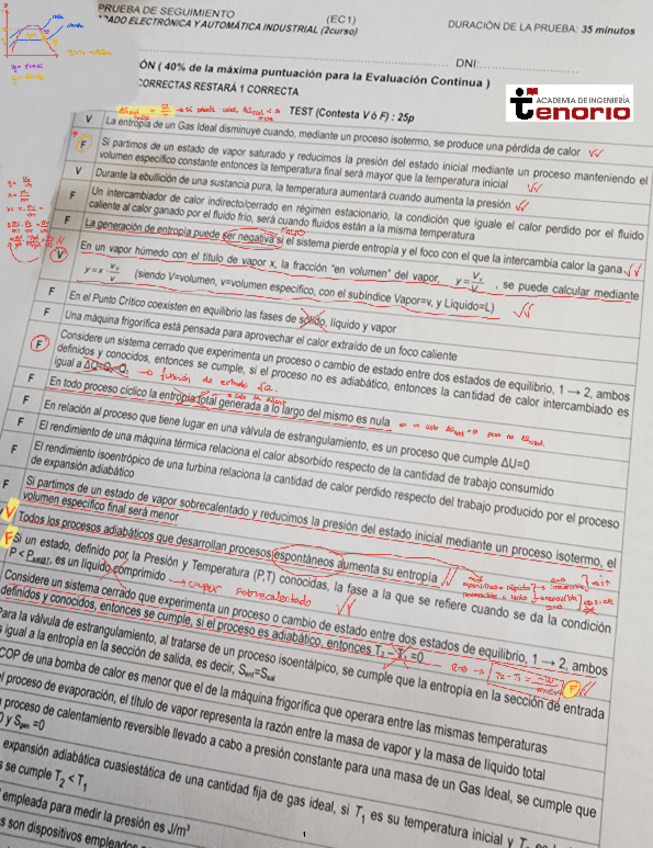 PRUEBA DE SEGUIMIENTO (EC1)
ADO ELECTRÓNICA Y AUTOMÁTICA INDUSTRIAL (2curso)
DURACIÓN DE LA PRUEBA: 35 minutos
DNI:
ÓN ( 40% de la máxima puntuación para la Evaluación Continua )
CORRECTAS RESTARÁ 1 CORRECTA
ACADEMIA DE INGENIERÍA
Tenorio
TEST (Contesta V ó F) : 25p
V La entropía de un Gas Ideal disminuye cuando, mediante un proceso isotermo, se produce una pérdida de calor
F Si partimos de un estado de vapor saturado y reducimos la presión del estado inicial mediante un proceso manteniendo el
volumen específico constante entonces la temperatura final será mayor que la temperatura inicial
V Durante la ebullición de una sustancia pura, la temperatura aumentará cuando aumenta la presión
F Un intercambiador de calor indirecto/cerrado en régimen estacionario, la condición que iguale el calor perdido por el fluido
caliente al calor ganado por el fluido frío, será cuando fluidos están a la misma temperatura
F La generación de entropía puede ser negativa si el sistema pierde entropía y el foco con el que la intercambia calor la gana
V En un vapor húmedo con el título de vapor x, la fracción "en volumen" del vapor, y = Vv/V , se puede calcular mediante
y = x · vv/v (siendo V=volumen, v=volumen específico, con el subíndice Vapor=v, y Líquido=L)
F En el Punto Critico coexisten en equilibrio las fases de sólido, líquido y vapor
F Una máquina frigorífica está pensada para aprovechar el calor extraído de un foco caliente
F Considere un sistema cerrado que experimenta un proceso o cambio de estado entre dos estados de equilibrio, 1 → 2, ambos
definidos y conocidos, entonces se cumple, si el proceso no es adiabático, entonces la cantidad de calor intercambiado es
igual a ΔQ=Q2-Q1 → función de estado
F En todo proceso cíclico la entropía total generada a lo largo del mismo es nula
F En relación al proceso que tiene lugar en una válvula de estrangulamiento, es un proceso que cumple ΔU=0
F El rendimiento de una máquina térmica relaciona el calor absorbido respecto de la cantidad de trabajo consumido
F El rendimiento isoentrópico de una turbina relaciona la cantidad de calor perdido respecto del trabajo producido por el proceso
de expansión adiabático
F Si partimos de un estado de vapor sobrecalentado y reducimos la presión del estado inicial mediante un proceso isotermo, el
volumen específico final será menor
V Todos los procesos adiabáticos que desarrollan procesos espontáneos aumenta su entropía
F Si un estado, definido por la Presión y Temperatura (P,T) conocidas, la fase a la que se refiere cuando se da la condición
es un líquido comprimido → vapor sobrecalentado
Considere un sistema cerrado que experimenta un proceso o cambio de estado entre dos estados de equilibrio, 1 → 2, ambos
definidos y conocidos, entonces se cumple, si el proceso es adiabático, entonces T2 – T1 =0
Para la válvula de estrangulamiento, al tratarse de un proceso isoentálpico, se cumple que la entropía en la sección de entrada
s igual a la entropía en la sección de salida, es decir, Sent=Ssal
COP de una bomba de calor es menor que el de la máquina frigorífica que opera entre las mismas temperaturas
l proceso de evaporación, el título de vapor representa la razón entre la masa de vapor y la masa de líquido total
proceso de calentamiento reversible llevado a cabo a presión constante para una masa de un Gas Ideal, se cumple que
0 y Sgen =0
expansión adiabática cuasiestática de una cantidad fija de gas ideal, si T1 es su temperatura inicial y
se cumple T2 < T1
empleada para medir la presión es J/m³
s son dispositivos empleados
1